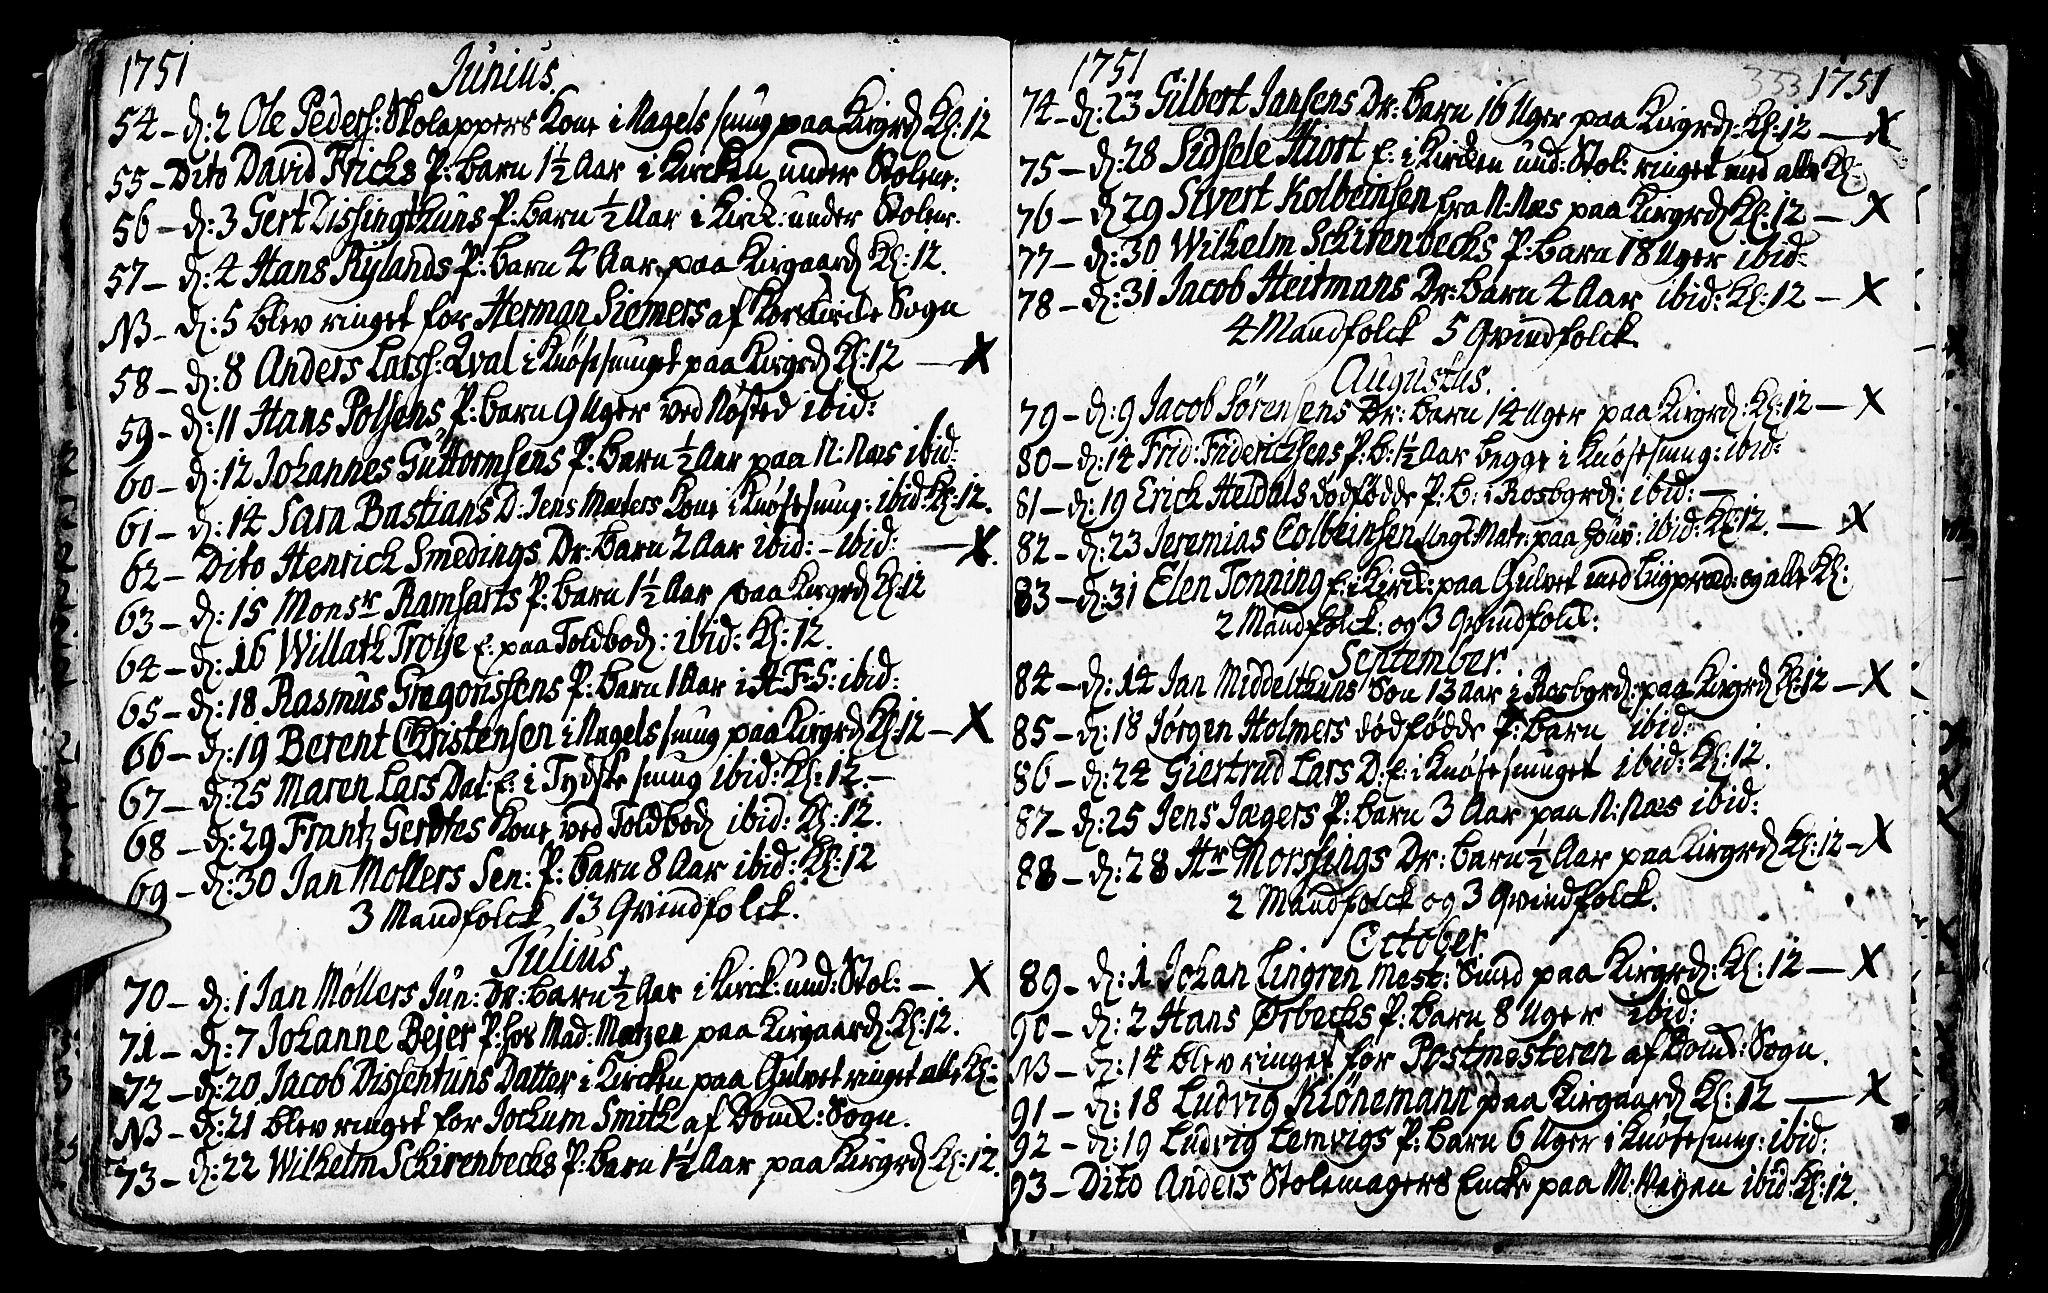 1751
Junius.
54 – d: 2 Ole Peders: Skolappers Kone i Nagels smug paa Kirgrd Kl: 12
55 – Dito David Fricks P: barn 1½ Aar i Kircken under Stolene:
56 – d: 3 Gert Dissingthuns P: barn ½ Aar i Kirck: under Stolene.
57 – d: 4 Hans Rylands P: barn 4 Aar paa Kirgaard Kl: 12.
NB – d: 5 blev ringet for Herman Siemers af Korskircke Sogn
58 – d: 8 Anders Larss: Qval i Knøsesmuget paa Kirgrd Kl: 12 — X
59 – d: 11 Hans Polsens P: barn 9 Uger ved Nøsted ibid:
60 – d: 12 Johannes Guttormsens P: barn ½ Aar paa N: Næs ibid:
61 – d: 14 Sara Bastians D: Jens Kone i Knøsesmug: ibid: Kl: 12.
62 – Dito Henrich Smedings Dr: barn 2 Aar ibid: – ibid: — X.
63 – d: 15 Monsr Ramsarts P: barn 1½ Aar paa Kirgrd Kl: 12
64 – d: 16 Willath Troije E. paa Toldbod: ibid: Kl: 12.
65 – d: 18 Rasmus Gregorissens P: barn 1 Aar i A: F: S: ibid:
66 – d: 19 Berent Christensen i Nagels smug paa Kirgrd Kl: 12 — X
67 – d: 25 Maren Lars Dat: E: i Tydske smug ibid: Kl: 12. –
68 – d: 29 Frantz Gerdtes Kone ved Toldbod ibid: Kl: 12.
69 – d: 30 Jan Mollers Sen: P: barn 8 Aar ibid: Kl: 12
3 Mandfolck 13 Qvindfolck.
Julius
70 – d: 1 Jan Møllers Jun: Dr: barn ½ Aar i Kirck: und: Stol: – X
71 – d: 7 Johanne Bejer P: hos Mad: Metzen paa Kirgaard: Kl: 12.
72 – d: 20 Jacob Dissentuns Datter i Kircken paa Gulvet ringet alle Kl:
NB – d: 21 blev ringet for Jochum Smith af Domk: Sogn.
73 – d: 22 Wilhelm Schirenbecks P: barn 1½ Aar paa Kirgrd Kl: 12.
1751 333 1751
74 – d: 23 Gilbert Jansens Dr: barn 16 Uger paa Kirgrd: Kl: 12 — X
75 – d: 28 Sidsele Hiort E: i Kircken und: Stol: ringet med alle Kl:
76 – d 29 Sivert Kolbeinsen fra N: Næs paa Kirgrd Kl: 12 — X
77 – d: 30 Wilhelm Schirenbecks P: barn 18 Uger ibid:
78 – d: 31 Jacob Heitmans Dr: barn 4 Aar ibid: Kl: 12 — X
4 Mandfolck 5 Qvindfolck.
Augustus.
79 – d: 9 Jacob Sørensens Dr: barn 14 Uger paa Kirgrd: Kl: 12 — X
80 – d: 14 Frid: Friderichsens P: B: 1½ Aar begge i Knøsesmug: ibid:
81 – d: 19 Erich Heldals dødfødde P: B: i Rosbgrd: ibid: —
82 – d: 23 Jeremias Colbeinsen Ungk: Matr: paa ibid: Kl: 12. — X
83 – d: 31 Elen Tonning E: i Kirck: paa Gulvet med Liigpræd: og alle Kl:
2 Mandfolck: og 3 Qvindfolck:
September.
84 – d: 14 Jan Middelthuns Søn 13 aar i Rosbgrd: paa Kirgrd Kl: 12 — X
85 – d: 18 Jørgen Holmers dødfødde P: barn ibid:
86 – d: 24 Giertrud Lars D: E: i Knøsesmuget ibid: Kl: 12.
87 – d: 25 Jens Jægers P: barn 3 Aar paa N: Næs ibid:
88 – d: 28 Hr Morssings Dr: barn ½ Aar paa Kirgrd Kl: 12 – X
2 Mandfolck og 3 Qvindfolck.
October
89 – d: 1 Johan Lingren Mest: Smed paa Kirgrd: Kl: 12 — X
90 – d: 2 Hans Ørbecks P: barn 8 Uger ibid:
NB – d: 14 blev ringet for Postmesteren af Domk: Sogn.
91 – d: 18 Ludvig Klønemann paa Kirgaard Kl: 12 — X
92 – d: 19 Ludvig Lemvigs P: barn 6 Uger i Knøsesmug: ibid:
93 – Dito Anders Stolemagers Encke paa M: Veyen ibid: Kl: 12.